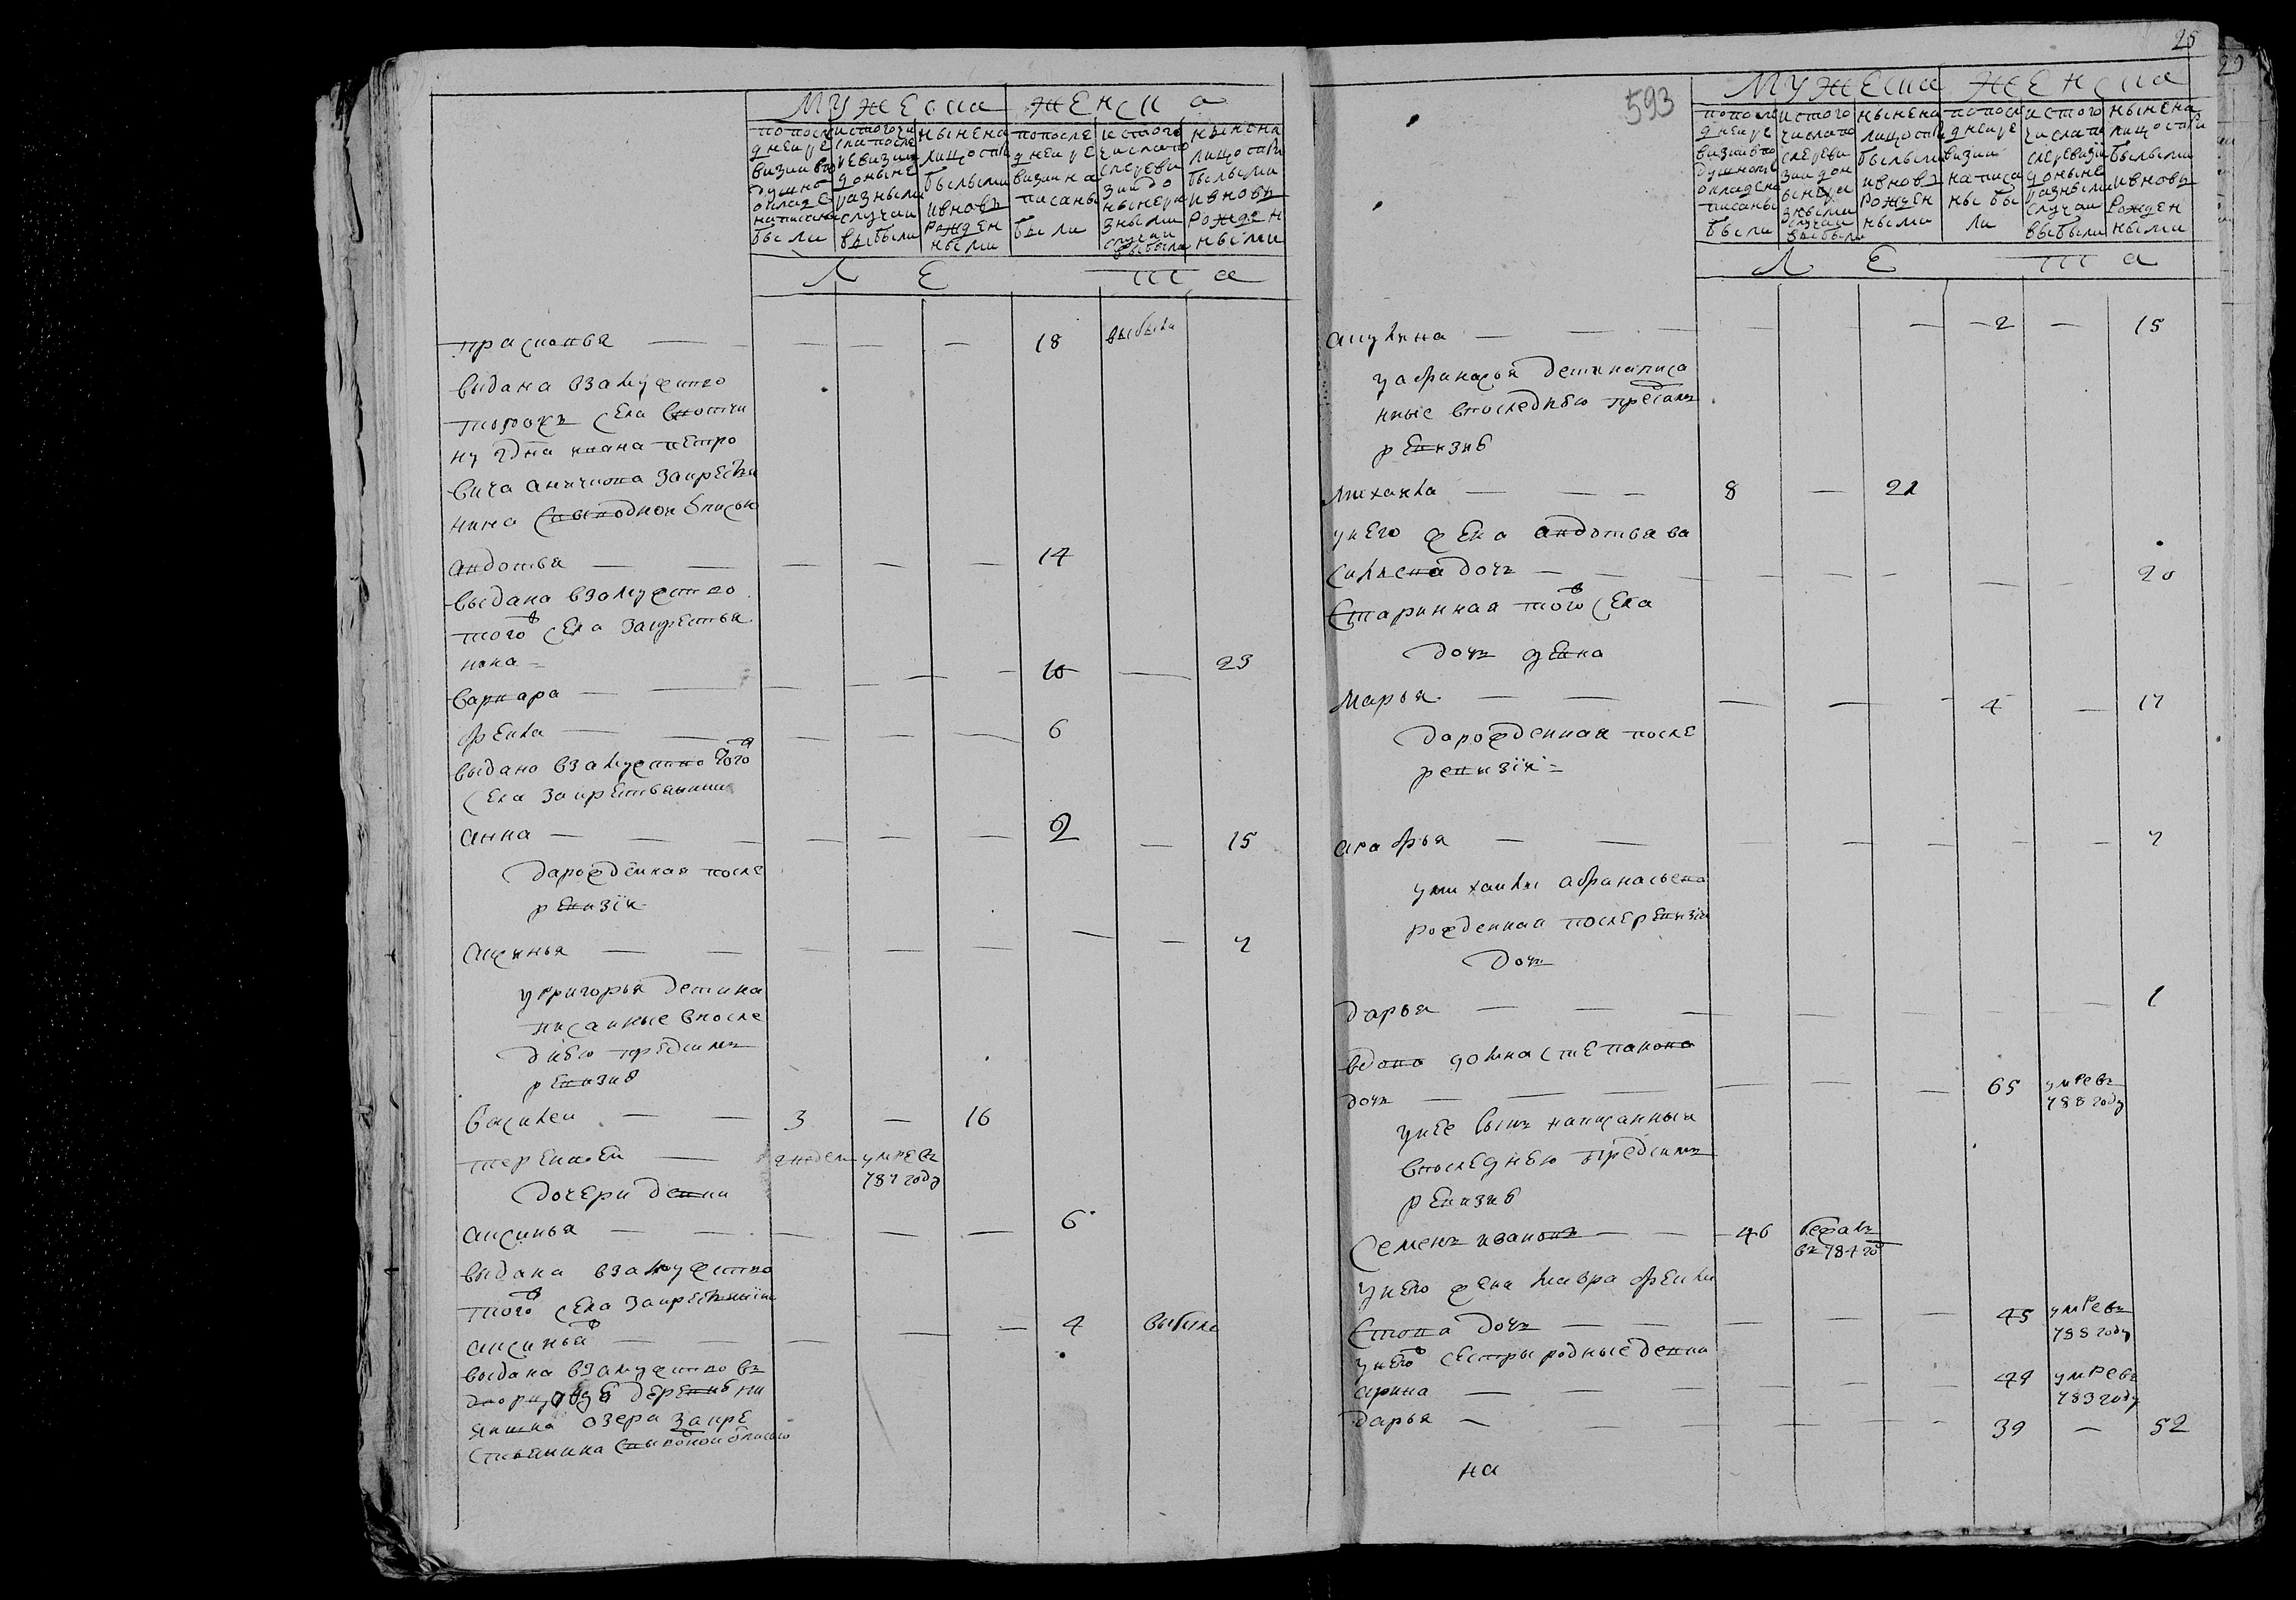 мужеска женска
по после
дней ре
визии в по
душно
окладе
написаны
были
ис того чи
сла после
ревизии
до ныне
разными
случаи
выбыли
ныне на
лицо ста
рыми
и вновь
рожден
ными
по после
дней ре
визии на
писаны
были
ис того
числа по
сле реви
зии до
ныне ра
зными
случаи
выбыли
ныне на
лицо ста
былыми
и вновь
рожден
ными
л е т а
прасковья — — — — — 18 выбыла
выдана взамужство
села вотчи
ну гдна ивана петро
вича за кресть
нина с выводной описью
авдотья — — — — — 14
выдана взамужство
того в села за крестья
нина
варвара — — — — — 10 — 23
фекла — — — — — 6
выдана взамужство того в
села за крестьянина
анна — — — — — 2 — 15
да рожденная после
ревизiи
аксинья — — — — — — — 7
у григорья дети на
писанные в после
днею пред симъ
ревизию
василей — — 3 — 16
терентей — 2 недел умре въ
787 году
дочери девки
аксинья — — — — — 6
выдана взамужство
того в села за крестьянина
аксинья — — — — — 4 выбыла
выдана взамужство въ
дворцовую деревню
озера за кре
стьянина с выводной описью
25
593
мужеска женска
по после
дней ре
визии в по
душном
окладе на
писаны
были
ис того
числа по
сле реви
зии до н
ыне ра
зными
случаи
выбыли
ныне на
лицо ста
былыми
и вновь
рожден
ными
по после
дней ре
визии
написа
ны бы
ли
ис того
числа по
сле ревизiи
до ныне
разными
случаи
выбыли
ныне на
лицо ста
былыми
и вновь
рожден
ными
л е т а
акулина — — — — — 2 — 15
у афанасья дети написа
нные в последнею пред симъ
ревизию
михайла — — — 8 — 21
у него жена авдотья ва
сильева дочь — — — — — — — 20
старинная того в села
дочь девка
марья — — — — — 4 — 17
да рожденная после
ревизiи
агафья — — — — — — — 7
у михайлы афанасьева
рожденная после ревизiи
дочь
дарья — — — — — — — 1
вдова домна степанова
дочь — — — — — 65 умре въ
788 году
у нее выше написанныя
в последнею пред симъ
ревизию
семенъ ивановъ — — 46 бежалъ
въ 784 го
у него жена мавра фекли
стова дочь — — — — — 45 умре въ
788 году
у него в сестры родные девки
арина — — — — — 49 умре въ
783 году
дарья — — — — — 39 — 52
на